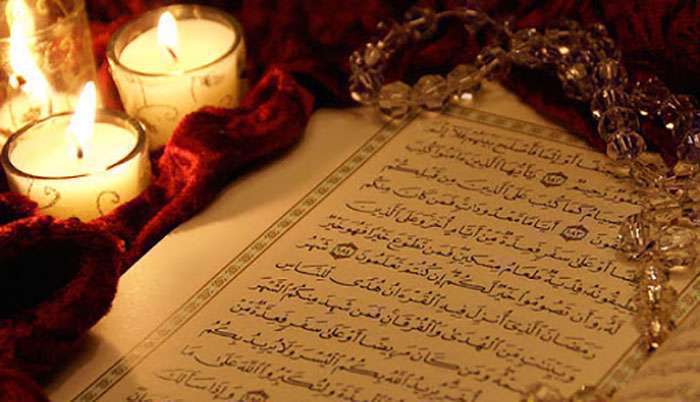 أَوْ إِثْمًا فَأَصْلَحَ بَيْنَهُمْ فَلَا إِثْمَ
غَفُورٌ رَّحِيمٌ ١٨٢ يَٰٓأَيُّهَا ٱلَّذِينَ ءَامَنُوا۟ كُتِبَ
ٱلصِّيَامُ كَمَا كُتِبَ عَلَى ٱلَّذِينَ مِن قَبْلِكُمْ
تَتَّقُونَ ١٨٣ أَيَّامًا مَّعْدُودَٰتٍ فَمَن كَانَ مِنكُم
أَوْ عَلَىٰ سَفَرٍ فَعِدَّةٌ مِّنْ أَيَّامٍ أُخَرَ وَعَلَى ٱلَّذِينَ
يُطِيقُونَهُۥ فِدْيَةٌ طَعَامُ مِسْكِينٍ فَمَن تَطَوَّعَ خَيْرًا فَهُوَ خَيْرٌ
لَّهُۥ وَأَن تَصُومُوا۟ خَيْرٌ لَّكُمْ إِن كُنتُمْ تَعْلَمُونَ ١٨٤ شَهْرُ
رَمَضَانَ ٱلَّذِىٓ أُنزِلَ فِيهِ ٱلْقُرْءَانُ هُدًى لِّلنَّاسِ
وَبَيِّنَٰتٍ مِّنَ ٱلْهُدَىٰ وَٱلْفُرْقَانِ فَمَن شَهِدَ مِنكُمُ ٱلشَّهْرَ
وَمَن كَانَ مَرِيضًا أَوْ عَلَىٰ سَفَرٍ فَعِدَّةٌ مِّنْ
أُخَرَ يُرِيدُ ٱللَّهُ بِكُمُ ٱلْيُسْرَ وَلَا يُرِيدُ بِكُمُ
ٱلْعِدَّةَ وَلِتُكَبِّرُوا۟ ٱللَّهَ عَلَىٰ مَا
وَإِذَا سَأَلَكَ